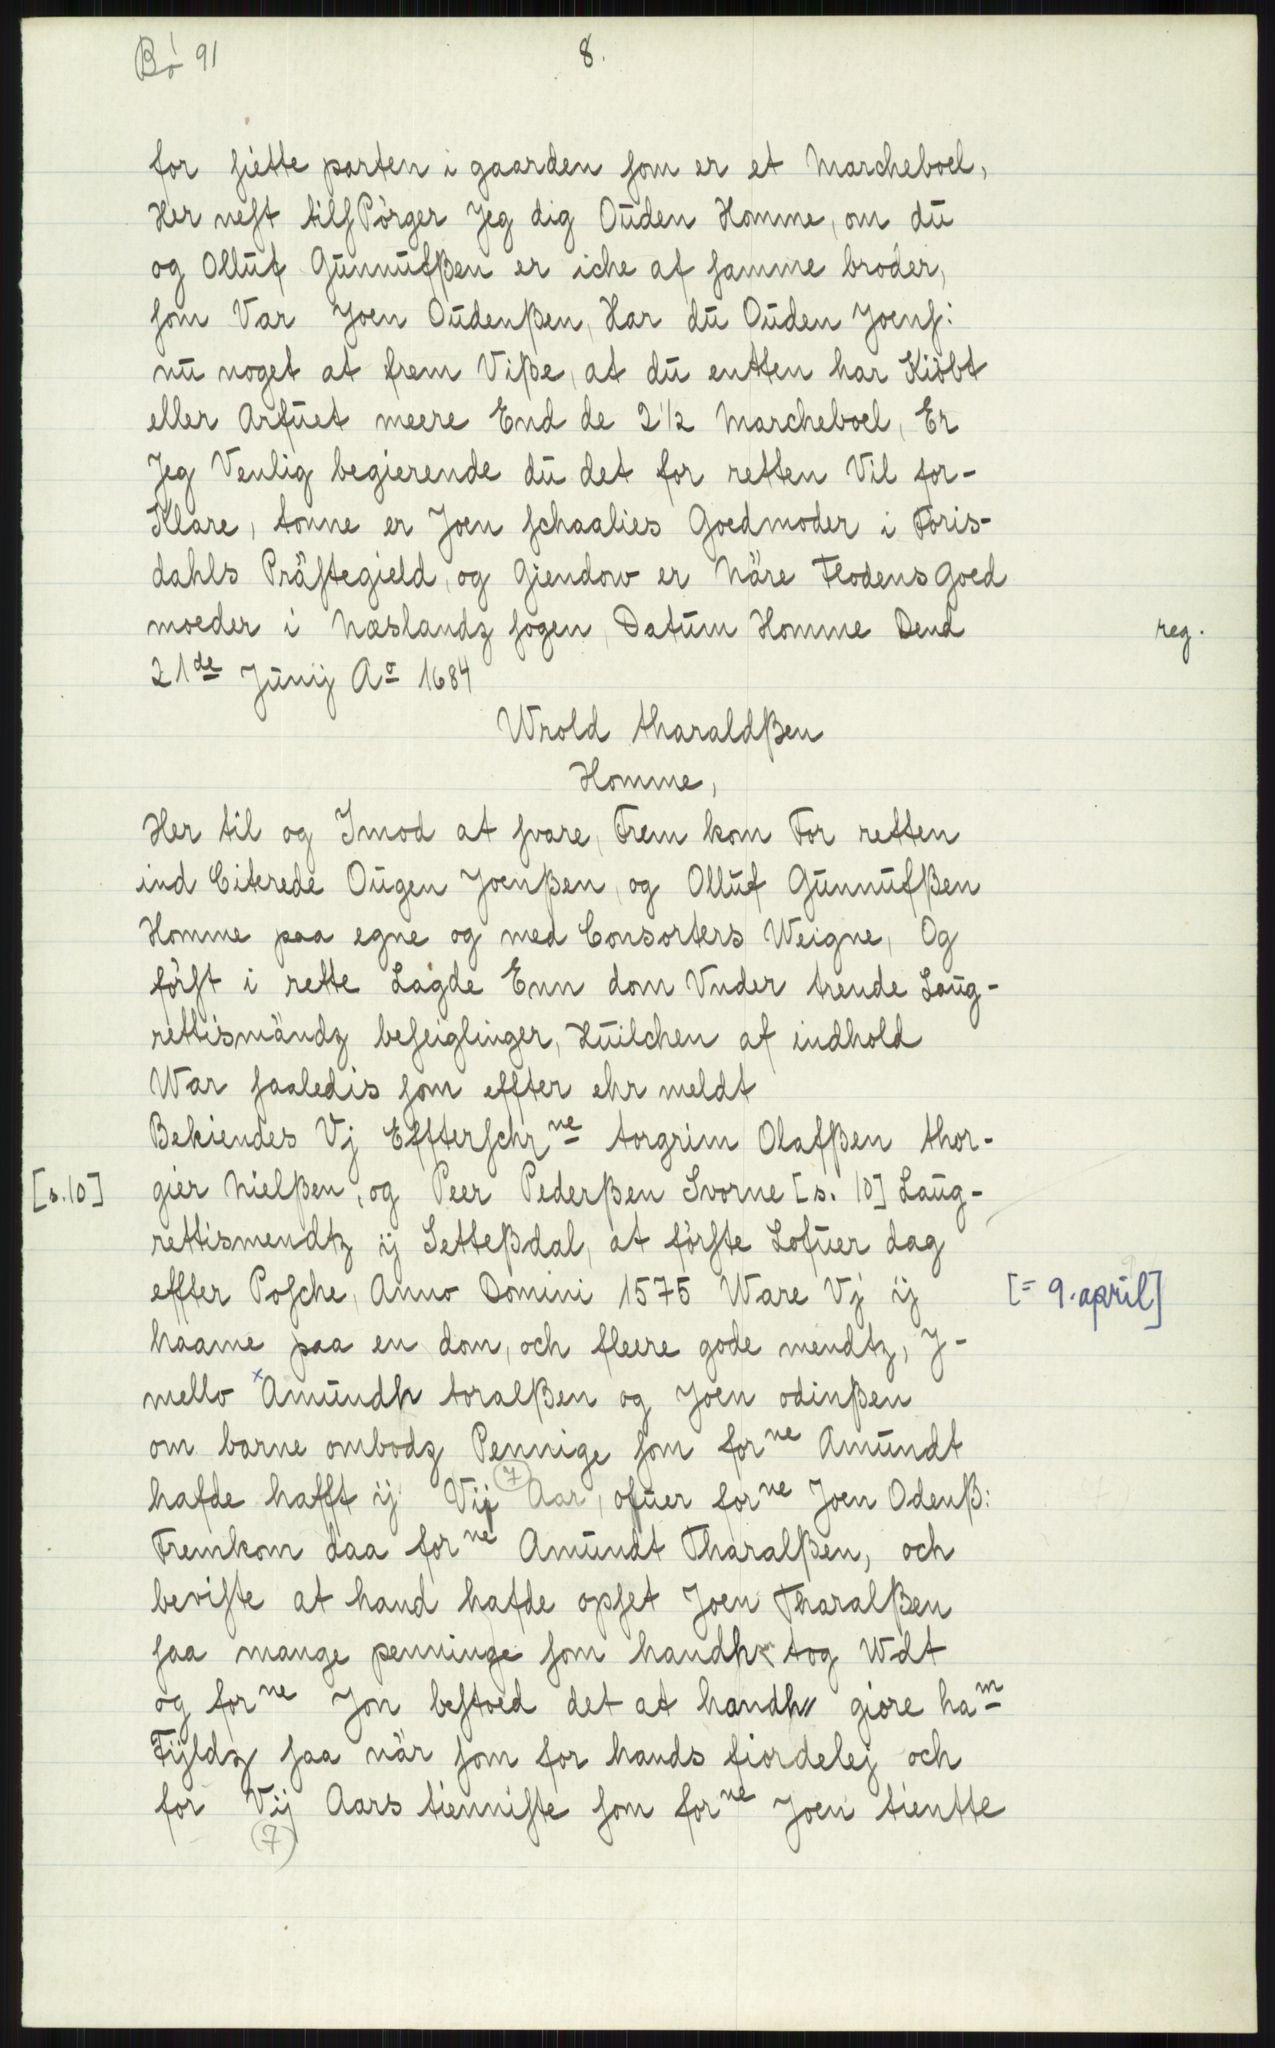 Bø 91
8.
for siette parten i gaarden som er et Marcheboel,
Her nest tilsPørger Jeg dig Ouden Homme, om du
og Olluf Gunnufßen er iche af samme brøder,
som Var Joen Oudenßen, Har du Ouden Joens:
nu noget at frem Viße, at du entten har Kiøbt
eller Arfuet meere End de 2 1/2 Marcheboel, Er
Jeg Venlig begierende du det for retten Vil for-
Klare, tonne er Joen schaalies Goedmoder i Foris-
dahls Prästegield, og Giendow er Näre Flodens Goed
moeder i Næslandz sogen, Datum Homme Dend
reg.
21de Junij Ao 1684
Wrold tharaldßen
Homme,
Her til og Imod at svare, Frem kom For retten
ind Citerede Ougen Joenßen, og Olluf Gunnufßen
Homme paa egne og med Consorters Weigne, Og
først i rette Lagde Enn dom Vnder trende Laug-
rettismändz beseiglinger, Huilchen af indhold
War saaledis som effter ehr meldt
Bekiendes Vj Effterschrne torgrim Olafßen thor-
[s.10] gier Nielßen, og Peer Pederßen Svorne [s. 10] Laug-
rettismendtz ij Setteßdal, at første Lofuer dag
effter Posche, Anno Domini 1575 Ware Vj ij [= 9. april]
haame paa en dom, och fleere gode mendtz, J-
mello x Amundh toralßen og Joen odinßen
om barne ombodz Pennige som forne Amundt
hafde hafft ij Vij (7) Aar, ofuer forne Joen Odenß:
Fremkom daa forne Amundt Tharalßen, och
beviste at hand hafde opset Joen Tharalßen
saa mange penninge som handh tog Wdt
og forne Jon bestoed det at handh giøre ham
Fyldz saa när som for hands fiordelej och
for Vij Aars tienniste som forne Joen tientte
(7)